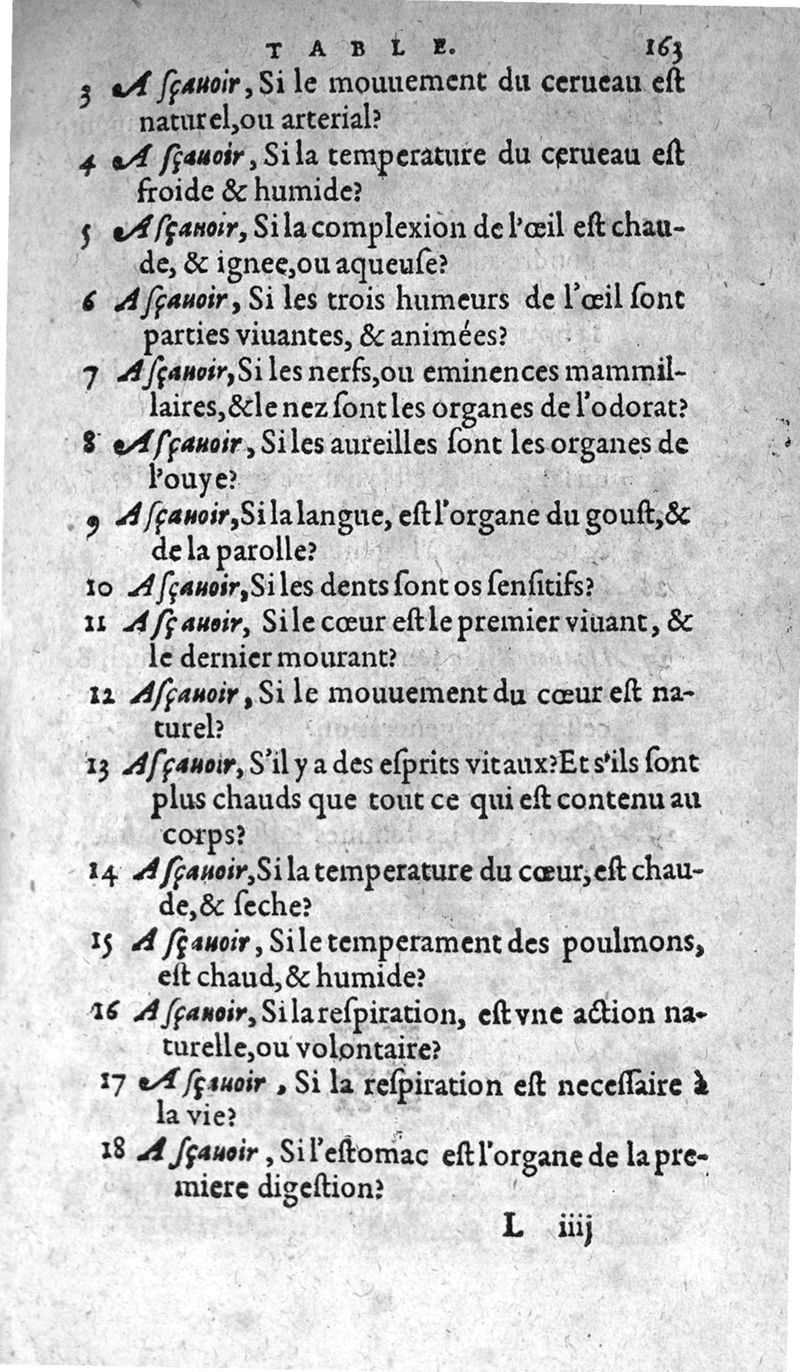 TABLE. 163
3 Aſçauoir, Si le mouuement du cerueau eſt
naturel, ou arterial?
4 Aſçauoir, Si la temperature du cerueau eſt
froide & humide?
5 Aſçauoir, Si la complexion de l'œil eſt chau-
de, & ignee, ou aqueuſe?
6 Aſçauoir, Si les trois humeurs de l'œil ſont
parties viuantes, & animées?
7 Aſçauoir, Si les nerfs, ou eminences mammil-
laires, & le nez ſont les organes de l'odorat?
8 Aſçauoir, Si les aureilles ſont les organes de
l'ouye?
9 Aſçauoir, Si la langue, eſt l'organe du gouſt, &
de la parolle?
10 Aſçauoir, Si les dents ſont os ſenſitifs?
11 Aſçauoir, Si le cœur eſt le premier viuant, &
le dernier mourant?
12 Aſçauoir, Si le mouuement du cœur eſt na-
turel?
13 Aſçauoir, S'il y a des eſprits vitaux? Et s'ils ſont
plus chauds que tout ce qui eſt contenu au
corps?
14 Aſçauoir, Si la temperature du cœur, eſt chau-
de, & ſeche?
15 Aſçauoir, Si le temperament des poulmons,
eſt chaud, & humide?
16 Aſçauoir, Si la reſpiration, eſt vne action na-
turelle, ou volontaire?
17 Aſçauoir, Si la reſpiration eſt neceſſaire à
la vie?
18 Aſçauoir, Si l'eſtomac eſt l'organe de la pre-
miere digeſtion?
L iiij